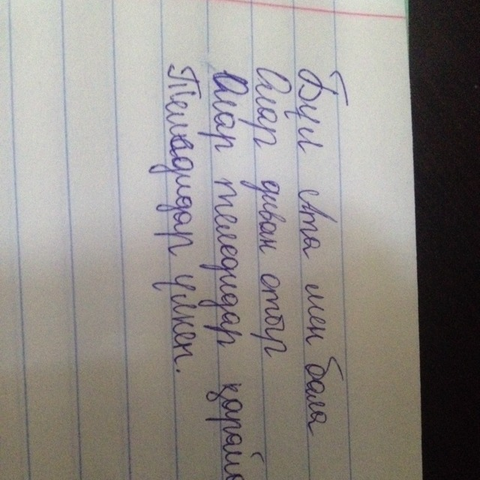 Бұл Ата мен бала
Олар диван отыр
Олар теледидар қарайы
Теледидар үлкен.